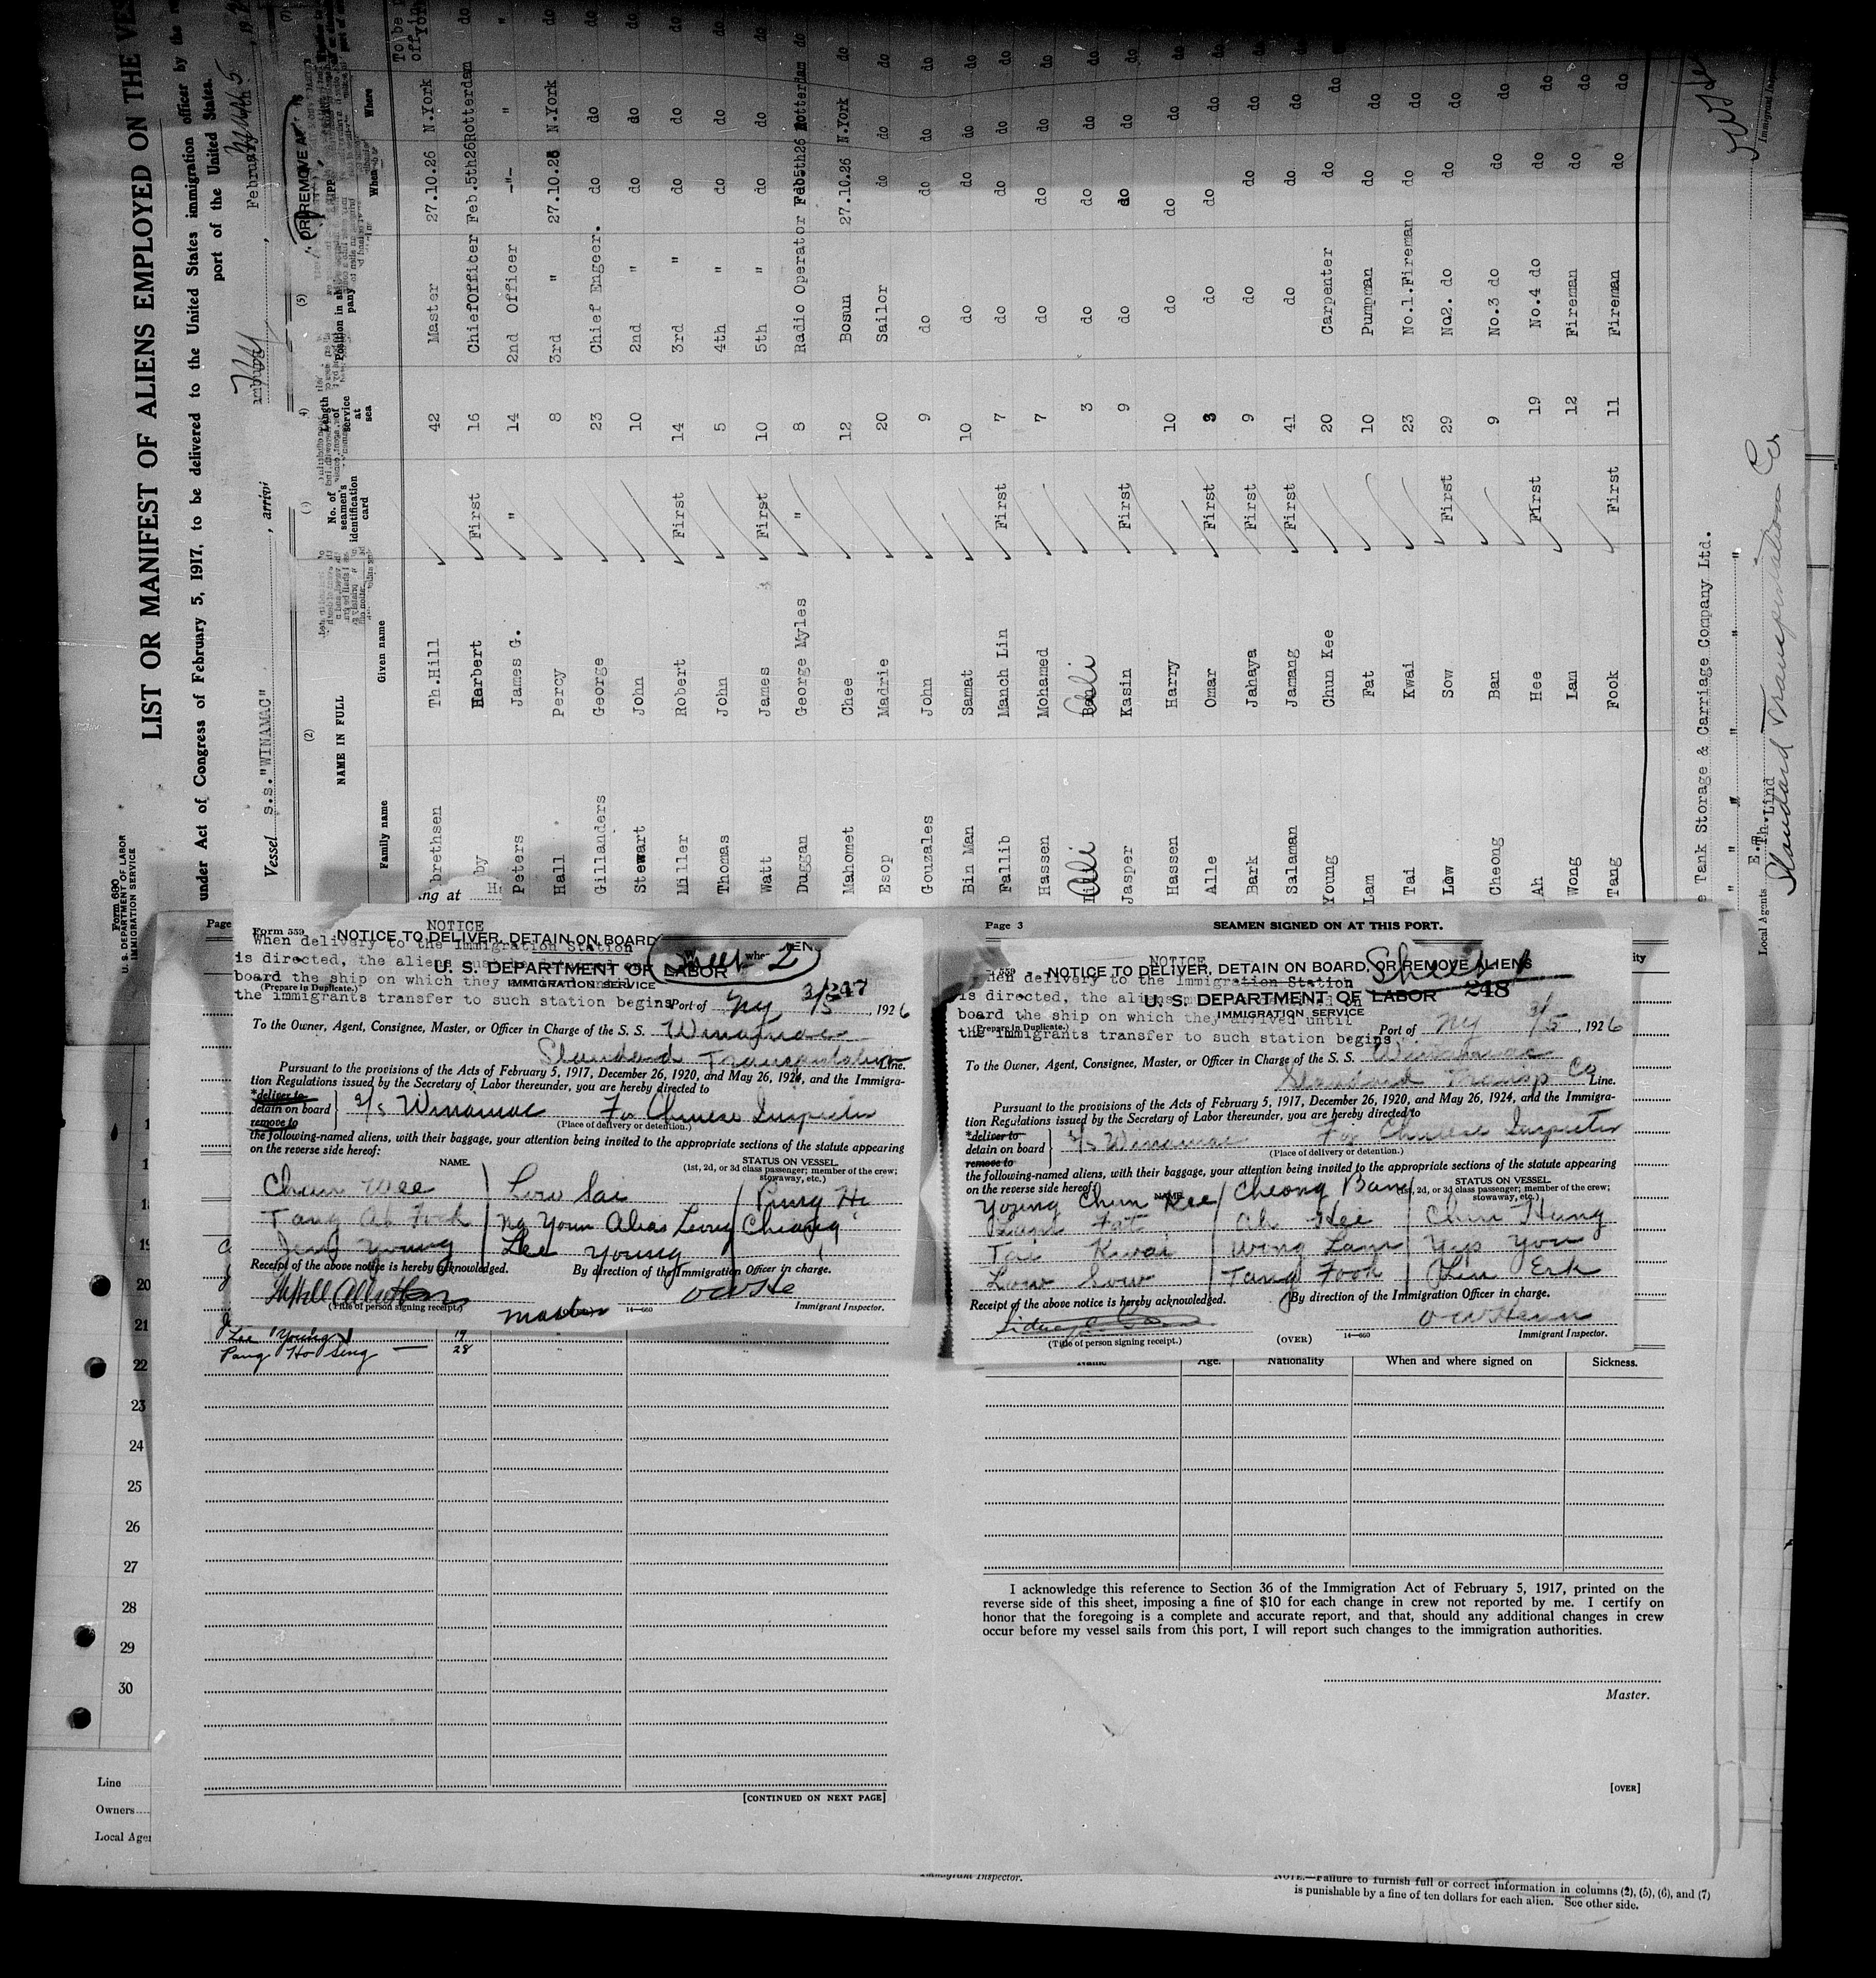 LIST OR MANIFEST OF ALIENS EMPLOYED ON THE VES
under Act of Congress of February 5, 1917, to be delivered to the United States immigration officer by the
port of the United States.
Form 680
U. S. DEPARTMENT OF LABOR
IMMIGRATION SERVICE
Vessel S.S."WINAMAC" , arrivi
, OR REMOVE A
(2) (5)
NAME IN FULL
Family name Given name
No. of seamen's identification card
Length of service at sea
Position in
When Where
brethsen Th.Hill 42 Master 27.10.26 N.York do
by Herbert First 16 ChiefOfficer Feb.5th26 Rotterdam do
Peters James G. " 14 2nd Officer -"- " "
Hall Percy 8 3rd " 27.10.26 N.York do
Gillanders George 23 Chief Engeer. do do do
Stewart John 10 2nd " do do do
Miller Robert First 14 3rd " do do do
Thomas John 5 4th " do do do
Watt James First 10 5th " do do do
Duggan George Myles " 8 Radio Operator Feb5th26 Rotterdam do
Mahomet Chee 12 Bosun 27.10.26 N.York do
Esop Madrie 20 Sailor do do do
Gouzales John 9 do do do do
Bin Man Samat 10 do do do do
Fallib Manch Lin First 7 do do do do
Hassen Mohamed 7 do do do do
Alli 3 do do do do
Jasper Kasin First 9 do do do do
Hassen Harry 10 do do do do
Alle Omar First 3 do do do do
Bark Jahaya First 9 do do do do
Salaman Jamang First 41 do do do do
Young Chun Kee 20 Carpenter do do do
Lam Fat 10 Pumpman do do do
Tai Kwai 23 No.1.Fireman do do do
Low Sow First 29 No2. do do do do
Cheong Ban 9 No.3 do do do do
Ah Hee First 19 No.4 do do do do
Wong Lan 12 Fireman do do do
Tang Fook First 11 Fireman do do do
e Tank Storage & Carriage Company Ltd.
" " " "
Local Agents E.Th.Lind
Standard Transportation Co
Page
Form 559
NOTICE
NOTICE TO DELIVER, DETAIN ON BOARD
When delivery to the Immigration Station
is directed, the aliens
Sheet 2
U. S. DEPARTMENT OF LABOR
board the ship on which they
IMMIGRATION SERVICE
(Prepare in Duplicate.)
the immigrants transfer to such station begins
247
Port of NY 3/5, 1926
To the Owner, Agent, Consignee, Master, or Officer in Charge of the S. S. Winamac
Standard Transportation Line.
Pursuant to the provisions of the Acts of February 5, 1917, December 26, 1920, and May 26, 1924, and the Immigra-
tion Regulations issued by the Secretary of Labor thereunder, you are hereby directed to
*deliver to
detain on board } S/S Winamac For Chinese Inspector
remove to
(Place of delivery or detention.)
the following-named aliens, with their baggage, your attention being invited to the appropriate sections of the statute appearing
on the reverse side hereof:
NAME. STATUS ON VESSEL
(1st, 2d, or 3d class passenger; member of the crew; stowaway, etc.)
Chun Wee Low Sai Pung Ho
Tang Ah Fook Ng Youn Alias Leong Cheong
Jeng Young Lee Young
Receipt of the above notice is hereby acknowledged. By direction of the Immigration Officer in charge.
(Title of person signing receipt.) Master 14—660 Immigrant Inspector.
Lee Young 19
Pang Ho Seng 28
Page 3 SEAMEN SIGNED ON AT THIS PORT.
NOTICE
NOTICE TO DELIVER, DETAIN ON BOARD, OR REMOVE ALIENS
Sheet 1
hen delivery to the Immigration Station
is directed, the aliens
U. S. DEPARTMENT OF LABOR
248
board the ship on which they arrived until
IMMIGRATION SERVICE
(Prepare in Duplicate.)
the immigrants transfer to such station begins
Port of NY 3/5, 1926
To the Owner, Agent, Consignee, Master, or Officer in Charge of the S. S. Winamac
Standard Transp Co Line.
Pursuant to the provisions of the Acts of February 5, 1917, December 26, 1920, and May 26, 1924, and the Immigra-
tion Regulations issued by the Secretary of Labor thereunder, you are hereby directed to
*deliver to
detain on board } S/S Winamac For Chinese Inspector
remove to
(Place of delivery or detention.)
the following-named aliens, with their baggage, your attention being invited to the appropriate sections of the statute appearing
on the reverse side hereof:
NAME. STATUS ON VESSEL
(1st, 2d, or 3d class passenger; member of the crew; stowaway, etc.)
Young Chun Kee Cheong Ban
Lam Fat Ah Hee Chin Hung
Tai Kwai Wong Lam Yip You
Low Sow Tang Fook Chin Erk
Receipt of the above notice is hereby acknowledged. By direction of the Immigration Officer in charge.
(Title of person signing receipt.) (OVER) 14—660 Immigrant Inspector.
Name Age. Nationality When and where signed on Sickness.
19
20
21
22
23
24
25
26
27
28
29
30
I acknowledge this reference to Section 36 of the Immigration Act of February 5, 1917, printed on the
reverse side of this sheet, imposing a fine of $10 for each change in crew not reported by me. I certify on
honor that the foregoing is a complete and accurate report, and that, should any additional changes in crew
occur before my vessel sails from this port, I will report such changes to the immigration authorities.
Master.
[CONTINUED ON NEXT PAGE]
[OVER]
Line
Owners
Local Age
Immigrant Inspector.
NOTE.—Failure to furnish full or correct information in columns (2), (5), (6), and (7)
is punishable by a fine of ten dollars for each alien. See other side.